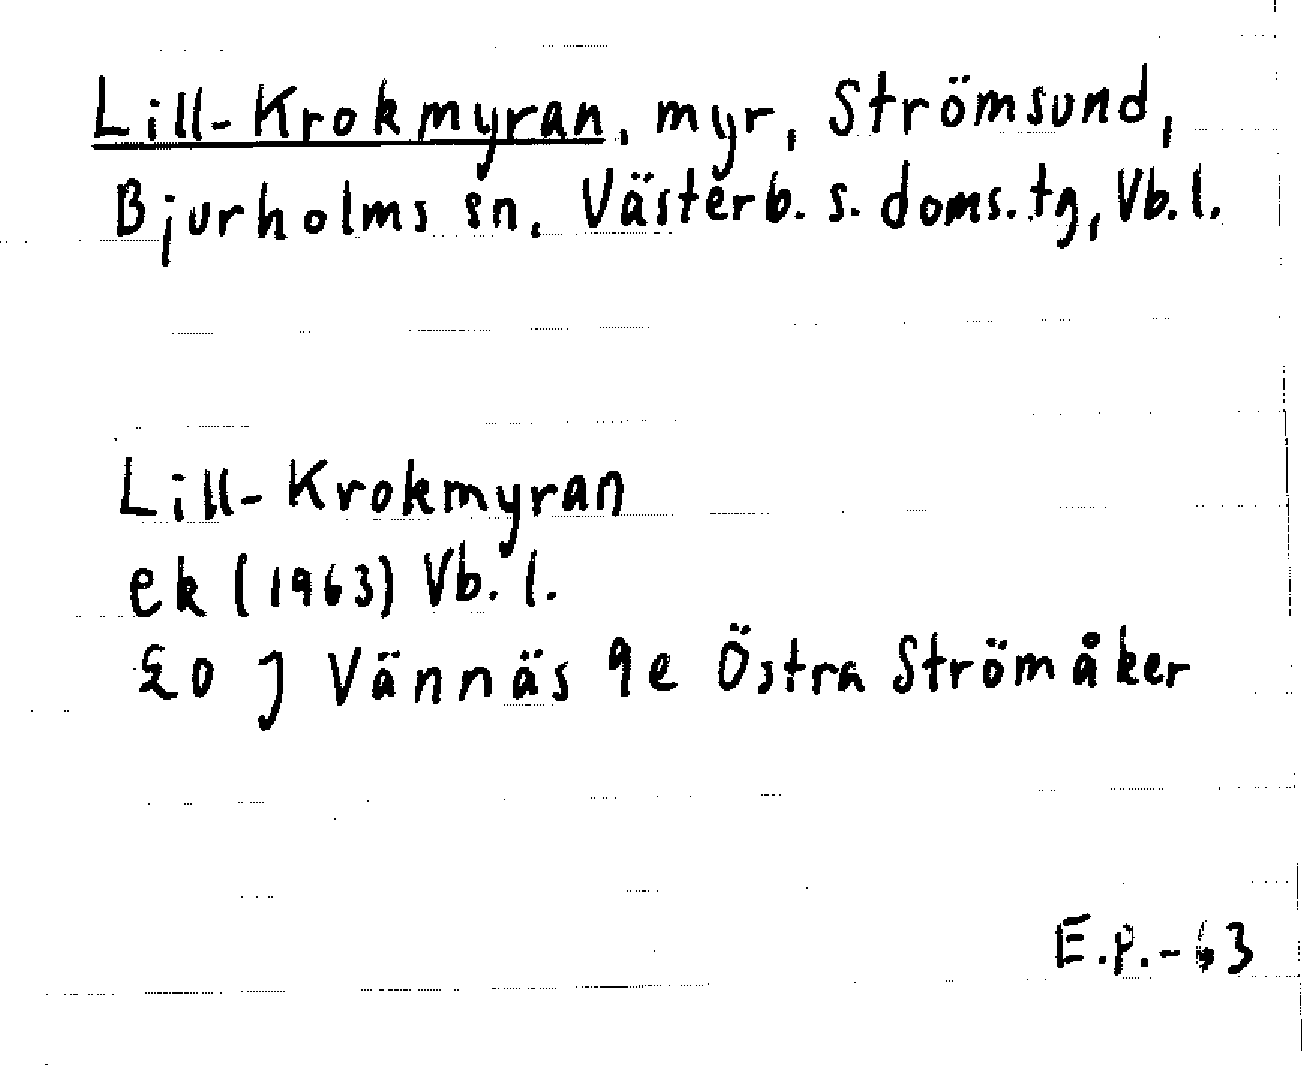 Lill-Krokmyran, myr, Strömsund,
Bjurholms sn, Västerb. s. doms. tg, Vb. l.
Lill-Krokmyran
ek (1963) Vb. l.
20 J Vännäs 9e Östra Strömåker
E.P.-63